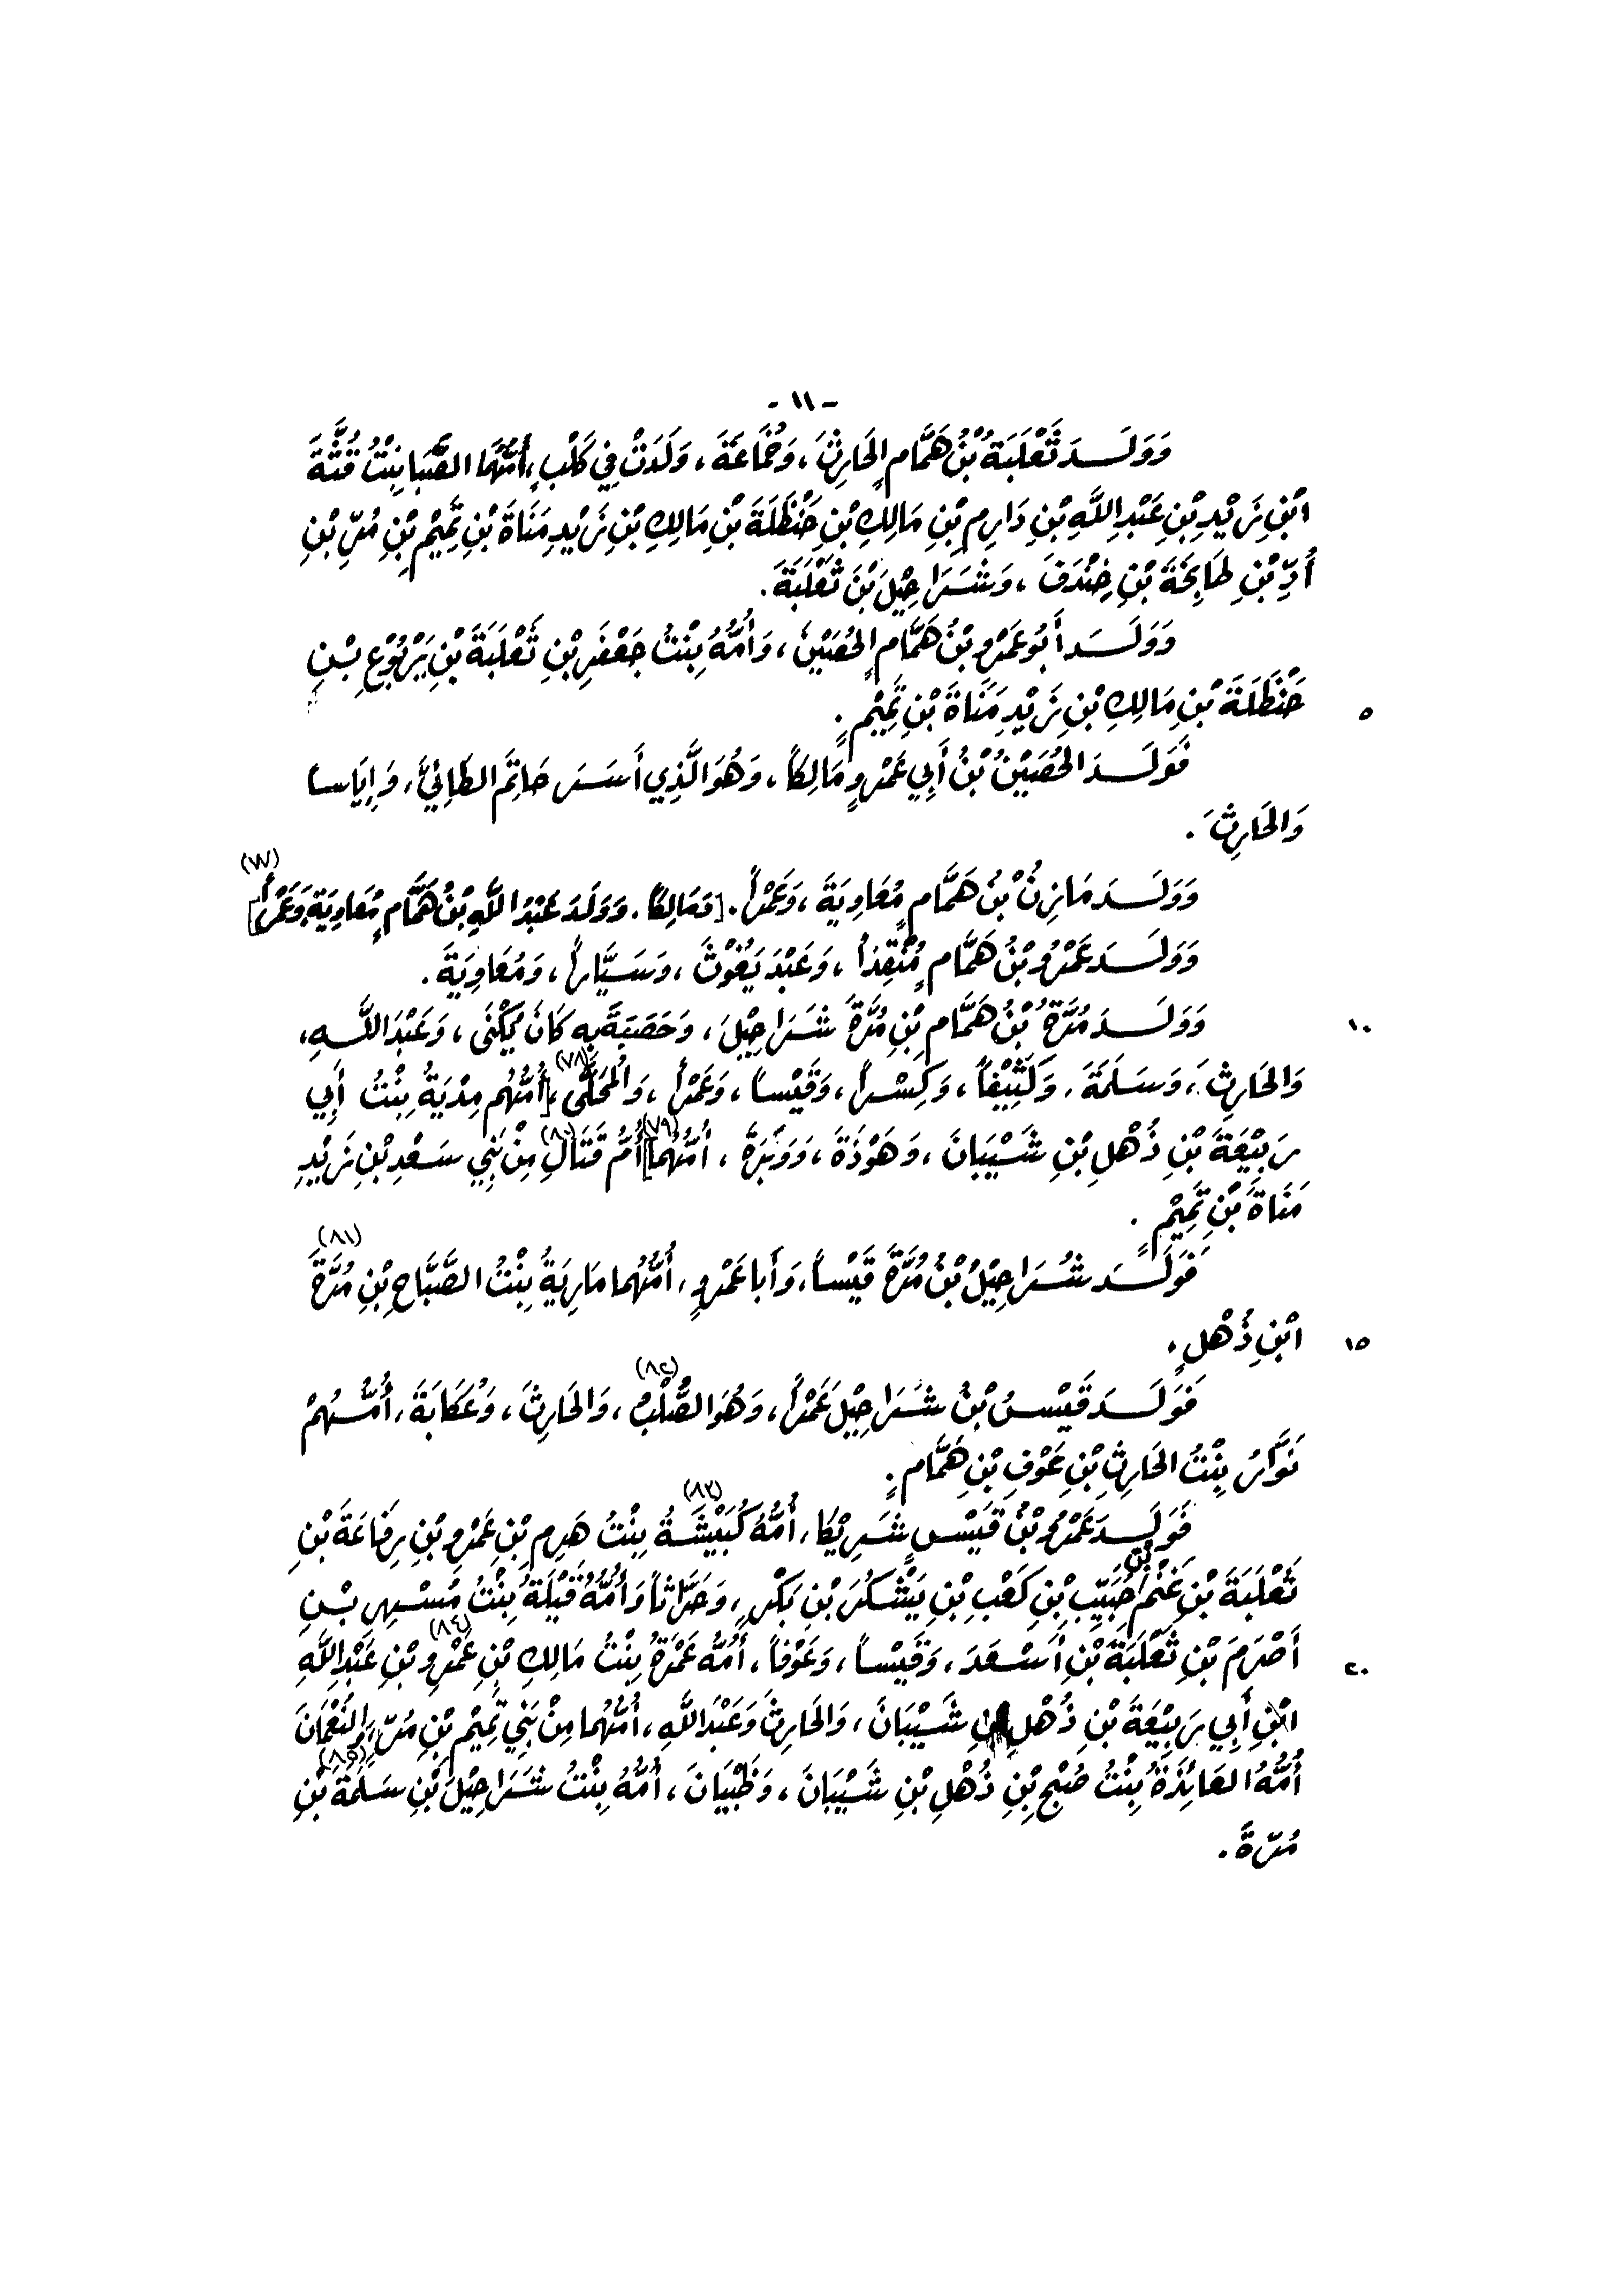 - ١١ -
وَوَلَـــدَ ثَعْلَبَةُ بْنُ هَمَّامٍ الحَارِثَ، وَخُمَاعَةَ، وَلَدَتْ فِي كَلْبٍ، أُمُّهُمَا الصَّبَا بِنْتُ قُثَّةَ
ابْنِ زَيْدِ بْنِ عَبْدِ اللَّهِ بْنِ دَارِمِ بْنِ مَالِكِ بْنِ حَنْظَلَةَ بْنِ مَالِكِ بْنِ زَيْدِ مَنَاةَ بْنِ تَمِيْمِ بْنِ مُرِّ بْنِ
أُدِّ بْنِ طَابِخَةَ بْنِ خِنْدَفَ، وَشَرَاحِيْلَ بْنَ ثَعْلَبَةَ.
وَوَلَــدَ أَبُو عَمْرِو بْنُ هَمَّامٍ الحُصَيْنَ، وَأُمُّهُ بِنْتُ جَعْفَرِ بْنِ ثَعْلَبَةَ بْنِ يَرْبُوْعِ بْـنِ
حَنْظَلَةَ بْنِ مَالِكِ بْنِ زَيْدِ مَنَاةَ بْنِ تَمِيْمٍ. ٥
فَوَلَــدَ الحُصَيْنُ بْنُ أَبِي عَمْرٍو مَالِكاً، وَهُوَ الَّذِي أَسَرَ حَاتِمَ الطَّائِيَّ، وَإِيَاساً
وَالحَارِثَ.
وَوَلَــدَ مَازِنُ بْنُ هَمَّامٍ مُعَاوِيَةَ، وَعَمْراً. [وَمَالِكاً. وَوَلَدَ عَبْدُ اللَّهِ بْنُ هَمَّامٍ مُعَاوِيَةَ وَعَمْراً] (٧٧)
وَوَلَــدَ عَمْرُو بْنُ هَمَّامٍ مُنْقِذاً، وَعَبْدَ يَغُوْثَ، وَسَيَّاراً، وَمُعَاوِيَةَ.
وَوَلَــدَ مُرَّةُ بْنُ هَمَّامِ بْنِ مُرَّةَ شَرَاحِيْلَ، وَحَصَبَةَ بِهِ كَانَ يُكْنَى، وَعَبْدَ اللَّـهِ، ١٠
وَالحَارِثَ، وَسَلَمَةَ، وَكَثِيْفاً، وَكِسْراً، وَقَيْساً، وَعَمْراً، وَالمُحَلَّى، (٧٨) [أُمُّهُم مِدْيَةُ بِنْتُ أَبِي
رَبِيْعَةَ بْنِ ذُهْلِ بْنِ شَيْبَانَ، وَهَوْذَةَ، وَوَبَرَةَ، أُمُّهُمَا] (٧٩) أُمُّ قَتَالٍ (٨٠) مِنْ بَنِي سَعْدِ بْنِ زَيْدِ
مَنَاةَ بْنِ تَمِيْمٍ.
فَوَلَــدَ شُرَاحِيْلُ بْنُ مُرَّةَ قَيْساً، وَأَبَا عَمْرٍو، أُمُّهُمَا مَارِيَةُ بِنْتُ الصَّبَّاحِ بْنِ مُرَّةَ (٨١)
ابْنِ ذُهْلٍ. ١٥
فَوَلَــدَ قَيْسُ بْنُ شَرَاحِيْلَ عَمْراً، وَهُوَ الصُّلْبُ (٨٢)، وَالحَارِثَ، وَعُكَابَةَ، أُمُّـهُمْ
نَوَّارُ بِنْتُ الحَارِثِ بْنِ عَوْفِ بْنِ هَمَّامٍ.
فَوَلَــدَ عَمْرُو بْنُ قَيْسٍ شَرِيْكاً، أُمُّهُ كُبَيْشَةُ (٨٣) بِنْتُ هَرِمِ بْنِ عَمْرِو بْنِ رِفَاعَةَ بْنِ
ثَعْلَبَةَ بْنِ غَنْمِ بْنِ حُبَيِّبِ بْنِ كَعْبِ بْنِ يَشْكُرَ بْنِ بَكْرٍ، وَحَرَّاثاً وَأُمُّهُ قَيْلَةُ بِنْتُ مُسْهِرِ بْـنِ
أَصْرَمَ بْنِ ثَعْلَبَةَ بْنِ أَسْعَدَ، وَقَيْساً، وَعَوْفاً، أُمُّهُ عَمْرَةُ بِنْتُ مَالِكِ بْنِ عَمْرِو (٨٤) بْنِ عَبْدِ اللَّهِ ٢٠
ابْنِ أَبِي رَبِيْعَةَ بْنِ ذُهْلِ بْنِ شَيْبَانَ، وَالحَارِثَ وَعَبْدَ اللَّهِ، أُمُّهُمَا مِنْ بَنِي تَمِيْمِ بْنِ مُرٍّ، وَالنُّعْمَانَ
أُمُّهُ العَائِذَةُ بِنْتُ صُبْحِ بْنِ ذُهْلِ بْنِ شَيْبَانَ، وَظَبْيَانَ، أُمُّهُ بِنْتُ شَرَاحِيْلَ بْنِ سَلَمَةَ (٨٥) بْنِ
مُرَّةَ.